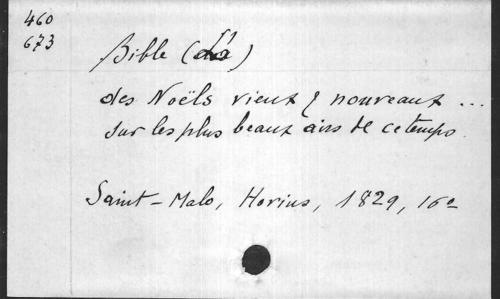 460
673
Bible (La)
des Noëls vieux & nouveaux ...
sur les plus beaux airs de ce temps.
Saint-Malo, Hovius, 1829, 16o